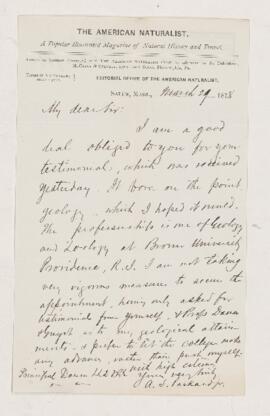 THE AMERICAN NATURALIST,
A Popular Illustrated Magazine of Natural History and Travel.
EDITORIAL OFFICE OF THE AMERICAN NATURALIST,
SALEM, MASS., March 29, 1878
My dear Sir:
I am a good
deal obliged to you for your
testimonial, which was received
yesterday. It bore on the point,
geology, which I hoped it would.
The professorship is one of Geology
and Zoology at Brown University
Providence, R.I. I am not taking
very vigorous measures to secure the
appointment, having only asked for
testimonials from yourself, & Profs Dana
& Guyot as to my geological attain-
ments. I prefer to let the college make
any advance, rather than push myself.
with high esteem
Yours very truly
A. S. Packard Jr.